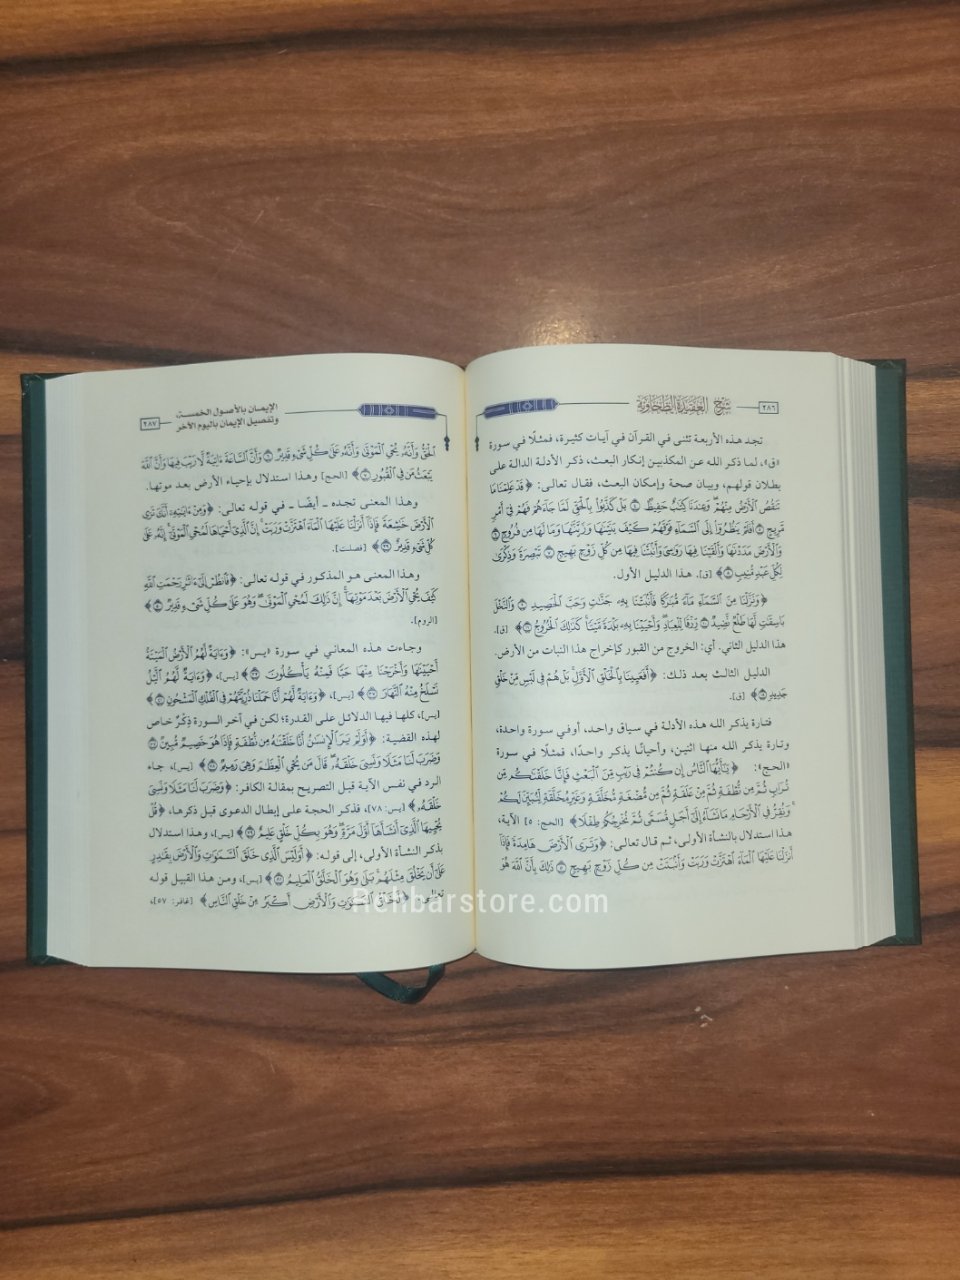 ٢٨٦ شرح العقيدة الطحاوية
تجد هذه الأربعة تثنى في القرآن في آيات كثيرة، فمثلًا في سورة
«ق»، لما ذكر الله عن المكذبين إنكار البعث، ذكر الأدلة الدالة على
بطلان قولهم، وبيان صحة وإمكان البعث، فقال تعالى: ﴿قَدْ عَلِمْنَا مَا
تَنقُصُ الْأَرْضُ مِنْهُمْ وَعِندَنَا كِتَٰبٌ حَفِيظٌ ۝٤ بَلْ كَذَّبُوا بِالْحَقِّ لَمَّا جَاءَهُمْ فَهُمْ فِي أَمْرٍ
مَّرِيجٍ ۝٥ أَفَلَمْ يَنظُرُوا إِلَى السَّمَاءِ فَوْقَهُمْ كَيْفَ بَنَيْنَٰهَا وَزَيَّنَّٰهَا وَمَا لَهَا مِن فُرُوجٍ ۝٦
وَالْأَرْضَ مَدَدْنَٰهَا وَأَلْقَيْنَا فِيهَا رَوَٰسِيَ وَأَنبَتْنَا فِيهَا مِن كُلِّ زَوْجٍ بَهِيجٍ ۝٧ تَبْصِرَةً وَذِكْرَىٰ
لِكُلِّ عَبْدٍ مُّنِيبٍ ۝٨﴾ [ق]. هذا الدليل الأول.
﴿وَنَزَّلْنَا مِنَ السَّمَاءِ مَاءً مُّبَٰرَكًا فَأَنبَتْنَا بِهِ جَنَّٰتٍ وَحَبَّ الْحَصِيدِ ۝٩ وَالنَّخْلَ
بَاسِقَٰتٍ لَّهَا طَلْعٌ نَّضِيدٌ ۝١٠ رِّزْقًا لِّلْعِبَادِ وَأَحْيَيْنَا بِهِ بَلْدَةً مَّيْتًا كَذَٰلِكَ الْخُرُوجُ ۝١١﴾ [ق].
هذا الدليل الثاني. أي: الخروج من القبور كإخراج هذا النبات من الأرض.
الدليل الثالث بعد ذلك: ﴿أَفَعَيِينَا بِالْخَلْقِ الْأَوَّلِ بَلْ هُمْ فِي لَبْسٍ مِّنْ خَلْقٍ
جَدِيدٍ ۝١٥﴾ [ق].
فتارة يذكر الله هذه الأدلة في سياق واحد، أو في سورة واحدة،
وتارة يذكر الله منها اثنين، وأحيانًا يذكر واحدًا، فمثلًا في سورة
«الحج»: ﴿يَٰأَيُّهَا النَّاسُ إِن كُنتُمْ فِي رَيْبٍ مِّنَ الْبَعْثِ فَإِنَّا خَلَقْنَٰكُم مِّن
تُرَابٍ ثُمَّ مِن نُّطْفَةٍ ثُمَّ مِنْ عَلَقَةٍ ثُمَّ مِن مُّضْغَةٍ مُّخَلَّقَةٍ وَغَيْرِ مُخَلَّقَةٍ لِّنُبَيِّنَ لَكُمْ
وَنُقِرُّ فِي الْأَرْحَامِ مَا نَشَاءُ إِلَىٰ أَجَلٍ مُّسَمًّى ثُمَّ نُخْرِجُكُمْ طِفْلًا﴾ [الحج: ٥] الآية،
هذا استدلال بالنشأة الأولى، ثم قال تعالى: ﴿وَتَرَى الْأَرْضَ هَامِدَةً فَإِذَا
أَنزَلْنَا عَلَيْهَا الْمَاءَ اهْتَزَّتْ وَرَبَتْ وَأَنبَتَتْ مِن كُلِّ زَوْجٍ بَهِيجٍ ۝٥ ذَٰلِكَ بِأَنَّ اللَّهَ هُوَ
الإيمان بالأصول الخمسة،
وتفصيل الإيمان باليوم الآخر ٢٨٧
الْحَقُّ وَأَنَّهُ يُحْيِ الْمَوْتَىٰ وَأَنَّهُ عَلَىٰ كُلِّ شَيْءٍ قَدِيرٌ ۝٦ وَأَنَّ السَّاعَةَ ءَاتِيَةٌ لَّا رَيْبَ فِيهَا وَأَنَّ اللَّهَ
يَبْعَثُ مَن فِي الْقُبُورِ ۝٧﴾ [الحج] وهذا استدلال بإحياء الأرض بعد موتها.
وهذا المعنى تجده ـ أيضًا ـ في قوله تعالى: ﴿وَمِنْ ءَايَٰتِهِ أَنَّكَ تَرَى
الْأَرْضَ خَٰشِعَةً فَإِذَا أَنزَلْنَا عَلَيْهَا الْمَاءَ اهْتَزَّتْ وَرَبَتْ إِنَّ الَّذِي أَحْيَاهَا لَمُحْيِ الْمَوْتَىٰ إِنَّهُ عَلَىٰ
كُلِّ شَيْءٍ قَدِيرٌ ۝٣٩﴾ [فصلت].
وهذا المعنى هو المذكور في قوله تعالى: ﴿فَانظُرْ إِلَىٰ ءَاثَٰرِ رَحْمَتِ اللَّهِ
كَيْفَ يُحْيِ الْأَرْضَ بَعْدَ مَوْتِهَا إِنَّ ذَٰلِكَ لَمُحْيِ الْمَوْتَىٰ وَهُوَ عَلَىٰ كُلِّ شَيْءٍ قَدِيرٌ ۝٥٠﴾
[الروم].
وجاءت هذه المعاني في سورة «يس»: ﴿وَءَايَةٌ لَّهُمُ الْأَرْضُ الْمَيْتَةُ
أَحْيَيْنَٰهَا وَأَخْرَجْنَا مِنْهَا حَبًّا فَمِنْهُ يَأْكُلُونَ ۝٣٣﴾ [يس]، ﴿وَءَايَةٌ لَّهُمُ الَّيْلُ
نَسْلَخُ مِنْهُ النَّهَارَ﴾ [يس]، ﴿وَءَايَةٌ لَّهُمْ أَنَّا حَمَلْنَا ذُرِّيَّتَهُمْ فِي الْفُلْكِ الْمَشْحُونِ ۝٤١﴾
[يس]، كلها فيها الدلائل على القدرة؛ لكن في آخر السورة ذِكْرٌ خاص
لهذه القضية: ﴿أَوَلَمْ يَرَ الْإِنسَٰنُ أَنَّا خَلَقْنَٰهُ مِن نُّطْفَةٍ فَإِذَا هُوَ خَصِيمٌ مُّبِينٌ ۝٧٧
وَضَرَبَ لَنَا مَثَلًا وَنَسِيَ خَلْقَهُ قَالَ مَن يُحْيِ الْعِظَٰمَ وَهِيَ رَمِيمٌ ۝٧٨﴾ [يس]، جاء
الرد في نفس الآية قبل التصريح بمقالة الكافر: ﴿وَضَرَبَ لَنَا مَثَلًا وَنَسِيَ
خَلْقَهُ﴾ [يس: ٧٨]، فذكر الحجة على إبطال الدعوى قبل ذكرها، ﴿قُلْ
يُحْيِيهَا الَّذِي أَنشَأَهَا أَوَّلَ مَرَّةٍ وَهُوَ بِكُلِّ خَلْقٍ عَلِيمٌ ۝٧٩﴾ [يس]، وهذا استدلال
بذكر النشأة الأولى، إلى قوله: ﴿أَوَلَيْسَ الَّذِي خَلَقَ السَّمَٰوَٰتِ وَالْأَرْضَ بِقَٰدِرٍ
عَلَىٰ أَن يَخْلُقَ مِثْلَهُم بَلَىٰ وَهُوَ الْخَلَّٰقُ الْعَلِيمُ ۝٨١﴾ [يس]، ومن هذا القبيل قوله
تعالى: ﴿لَخَلْقُ السَّمَٰوَٰتِ وَالْأَرْضِ أَكْبَرُ مِنْ خَلْقِ النَّاسِ﴾ [غافر: ٥٧]،
Rehbarstore.com